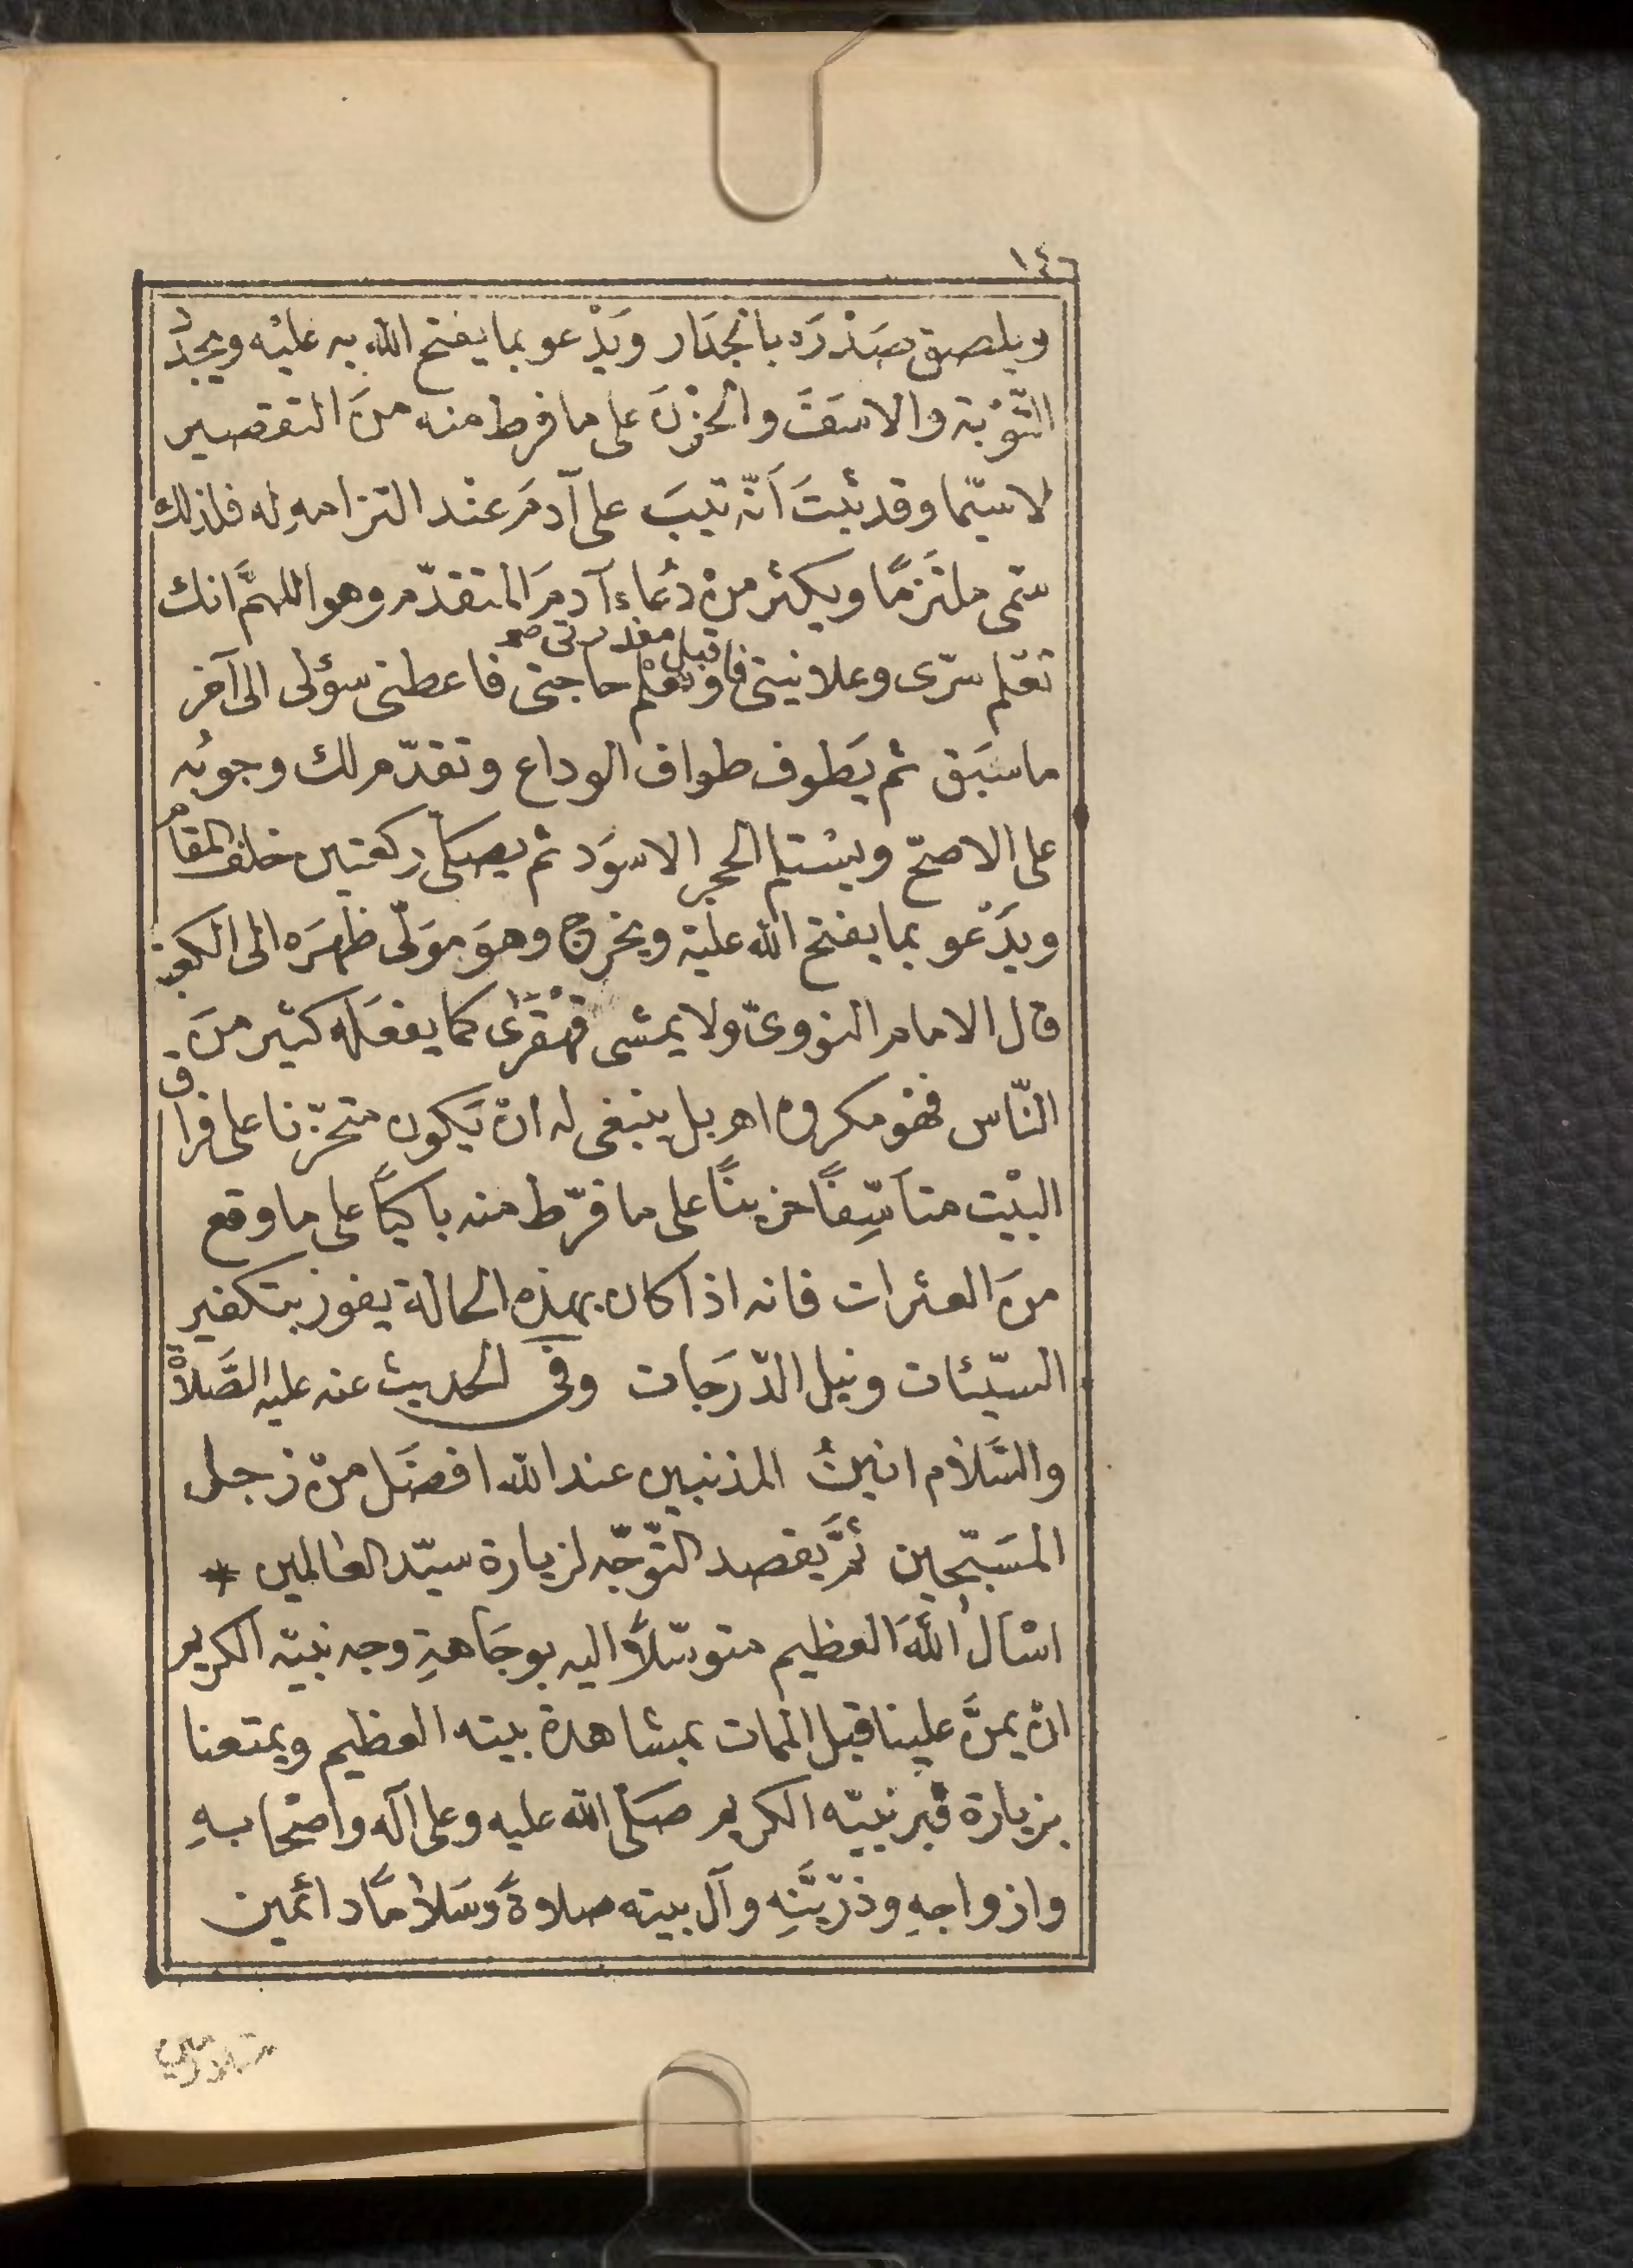 ١٤٦
ويلصق صَدْرَه بالجدَار وَيَدْعو بما يفتح الله به عليْه ويجدّد
التّوْبة والاسَفَ والحزْنَ على ما فرط منه منَ التقصير
لا سيّما وقد ثبتَ اَنّه تيبَ على آدمَ عنْد التزامهِ له فلذلك
سمّى ملتَزمًا ويكثر منْ دُعاء آدمَ المتقدّم وهو اللهمَّ انك
تعْلم سرّى وعلانيتى فاقبل معذرتى صح وتعْلم حاجتى فاعطنى سؤلى الى آخر
ما سَبَق ثم يَطوف طواف الوداع وتقدّم لك وجوبُه
على الاصحّ ويسْتلم الحجر الاسوَد ثم يصَلّى ركعتين خلف المقام
ويدَعْو بما يفتح الله عليْه ويخرج وهوَ موَلّى ظهرَه الى الكعبة
قال الامام النووىّ ولا يمشى قهْقَرٰى كما يفعَله كثير منَ
النّاس فهْو مكروه اهـ بل ينبغى له انْ يَكون متحزّنا على فراق
البيْت متأسّفًا حزينًا على ما فرّط منه باكيًا على ما وقع
منَ العثرات فانه اذا كان بهذه الحالة يفوز بتكفير
السيّئات ونيل الدّرَجات وفى الحديث عنه عليه الصَّلاةُ
والسَّلام انينُ المذنبين عند الله افضَل منْ زجل
المسَبّحين ثمَّ يقصد التّوجّه لزيارة سيّد العالمين *
اسْأل اللهَ العظيم متوسّلاً اليه بوجَاهةِ وجه نبيّه الكريم
انْ يمنَّ علينا قبل الممات بمشاهدة بيته العظيم ويمتعنا
بزيارة قبر نبيّه الكريم صَلّى الله عليه وعلى آله واصْحابهِ
وازواجهِ وذرّيّتهِ وآل بيته صلاةً وَسَلامًا دائمين